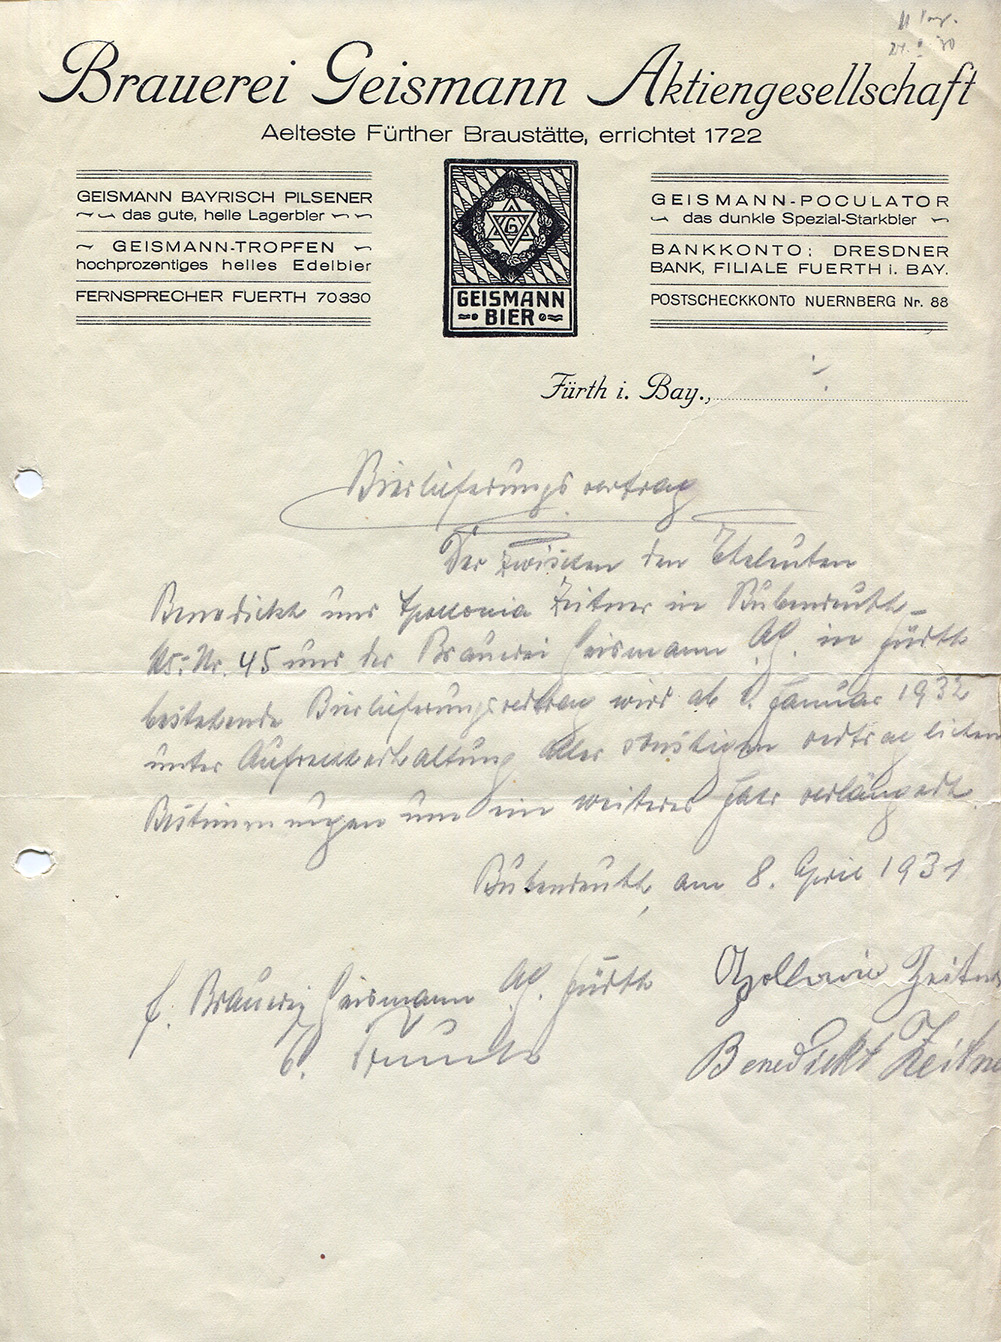 Brauerei Geismann Aktiengesellschaft
Aelteste Fürther Braustätte, errichtet 1722
GEISMANN BAYRISCH PILSENER
das gute, helle Lagerbier
GEISMANN-TROPFEN
hochprozentiges helles Edelbier
FERNSPRECHER FUERTH 70330
G
GEISMANN
BIER
GEISMANN-POCULATOR
das dunkle Spezial-Starkbier
BANKKONTO: DRESDNER
BANK, FILIALE FUERTH i. BAY.
POSTSCHECKKONTO NUERNBERG Nr. 88
Fürth i. Bay.,
Bierlieferungsvertrag
Der zwischen den Eheleuten
Benedickt und Apollonia Zeitner in Bubenreuth
Hs.-Nr. 45 und der Brauerei Geismann A.G. in Fürth
bestehende Bierlieferungsvertrag wird ab 1. Januar 1932
unter Aufrechterhaltung aller sonstigen vertraglichen
Bestimmungen um ein weiteres Jahr verlängert.
Bubenreuth, am 8. April 1931
f. Brauerei Geismann A.G. Fürth
Apollonia Zeitner
Benedickt Zeitne